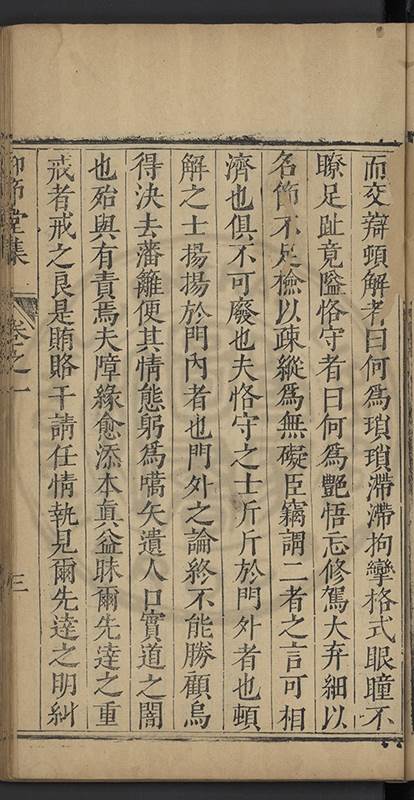 而交辯頓解者曰何爲瑣瑣滯滯拘攣格式眼瞳不
瞭足趾竟隘恪守者曰何爲艷悟忘修駕大弃細以
名節不足檢以疎縱爲無礙臣竊謂二者之言可相
濟也俱不可廢也夫恪守之士斤斤於門外者也頓
解之士揚揚於門內者也門外之論終不能勝顧烏
得決去藩籬便其情態躬爲嚆矢遺人口實道之闇
也殆與有責焉夫障緣愈添本真益昧爾先達之重
戒者戒之良是賄賂干請任情執見爾先達之明糾
仰節堂集
卷之一
三